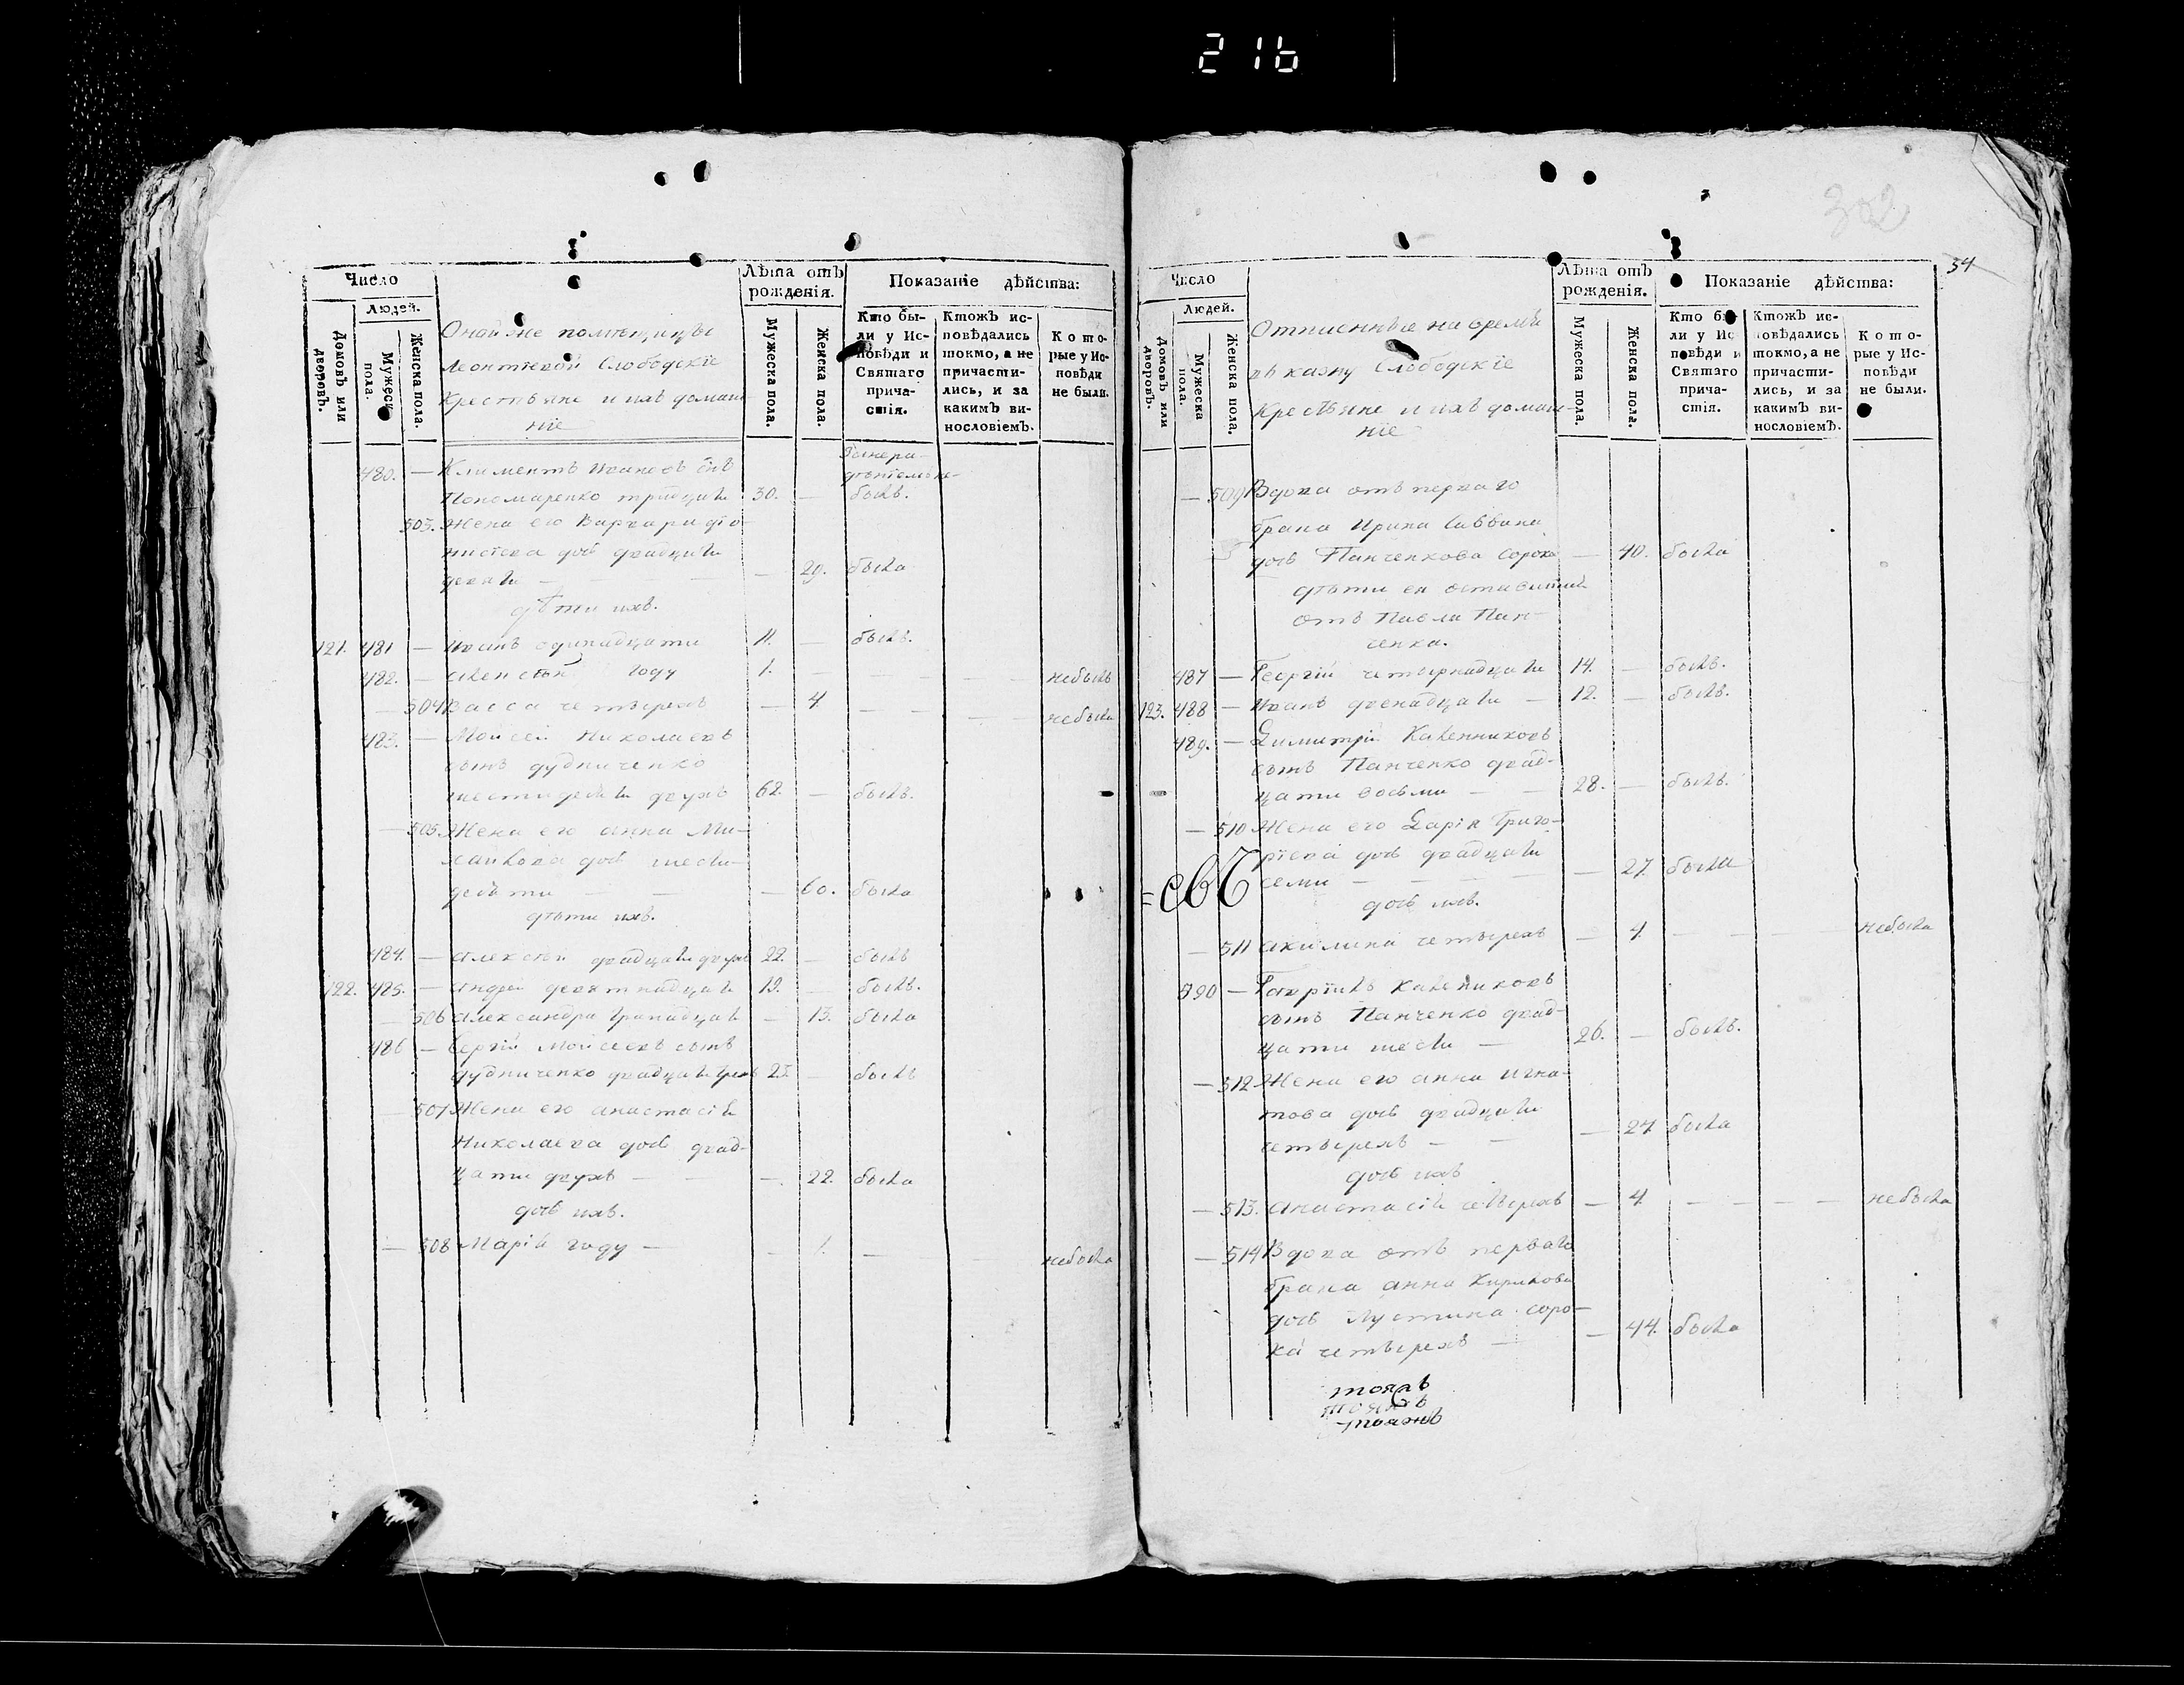 216
302
Число
Людей.
Домовъ или дворовъ.
Мужеска пола.
Женска пола.
Онойже помѣщицы
Леонтіевой Слободскіе
Крестьяне и ихъ домаш
ніе
Лѣта отъ рожденія.
Мужеска пола.
Женска пола.
Показаніе дѣйства:
Кто были у Исповѣди и Святаго причастія.
Ктожъ исповѣдались токмо, а не причастились, и за какимъ винословіемъ.
Которые у Исповѣди не были.
480. — Климентъ Ивановъ снъ
Пономаренко тридцати 30. — былъ.
503. Жена его Варвара Діо-
нисіева дочь двадцати
девяти — — 29. была
дѣти ихъ.
121. 481 — Иванъ одинадцати 11. — былъ.
482. — году 1. — — — небылъ
— 504 Васса четырехъ — 4 — — — небыла
483. — Моисей Николаевъ
сынъ Дудниченко
шестидесяти двухъ 62. — былъ.
— 505. Жена его Анна Ми-
хайлова дочь шести-
десяти — — 60. была
дѣти ихъ.
484. — Алексѣй двадцати двухъ 22. — былъ
122. 485. — Андрей девятнадцати 19. — былъ.
— 506 Александра тринадцати — 13. была
486 — Сергій Моисеевъ сынъ
Дудниченко двадцати трехъ 23. — былъ
— 507 Жена его Анастасія
Николаева дочь двад-
цати двухъ — — 22. была
дочь ихъ.
— 508 Марія году — — 1. — — небыла
54
Число
Людей.
Домовъ или дворовъ.
Мужеска пола.
Женска пола.
Отписенные на время
въ казну Слободскіе
Крестьяне и ихъ домаш-
ніе
Лѣта отъ рожденія.
Мужеска пола.
Женска пола.
Показаніе дѣйства:
Кто были у Исповѣди и Святаго причастія.
Ктожъ исповѣдались токмо, а не причастились, и за какимъ винословіемъ.
Которые у Исповѣди не были.
— 509 Вдова отъ перваго
брака Ирина Саввина
дочь Панченкова сорока — 40. была
дѣти ея
отъ Павла Пан-
ченка.
487 — Георгій четырнадцати 14. — былъ.
123. 488 — Иванъ двенадцати — 12. — былъ.
489. — Димитрій Калениковъ
сынъ Панченко двад-
цати восьми — — 28. — былъ.
— 510 Жена его Дарія Григо-
ріева дочь двадцати
семи — — 27. была
дочь ихъ.
— 511 Акилина четырехъ — 4. — — — небыла
490 — Гавріилъ Калениковъ
сынъ Панченко двад-
цати шести — 26. — былъ.
— 512 Жена его Анна Игна-
това дочь двадцати
четырехъ — — — 24 была
дочь ихъ
— 513. Анастасія четырехъ — 4. — — — небыла
— 514 Вдова отъ перваго
брака Анна Кирикова
дочь соро-
ка четырехъ — — 44. была